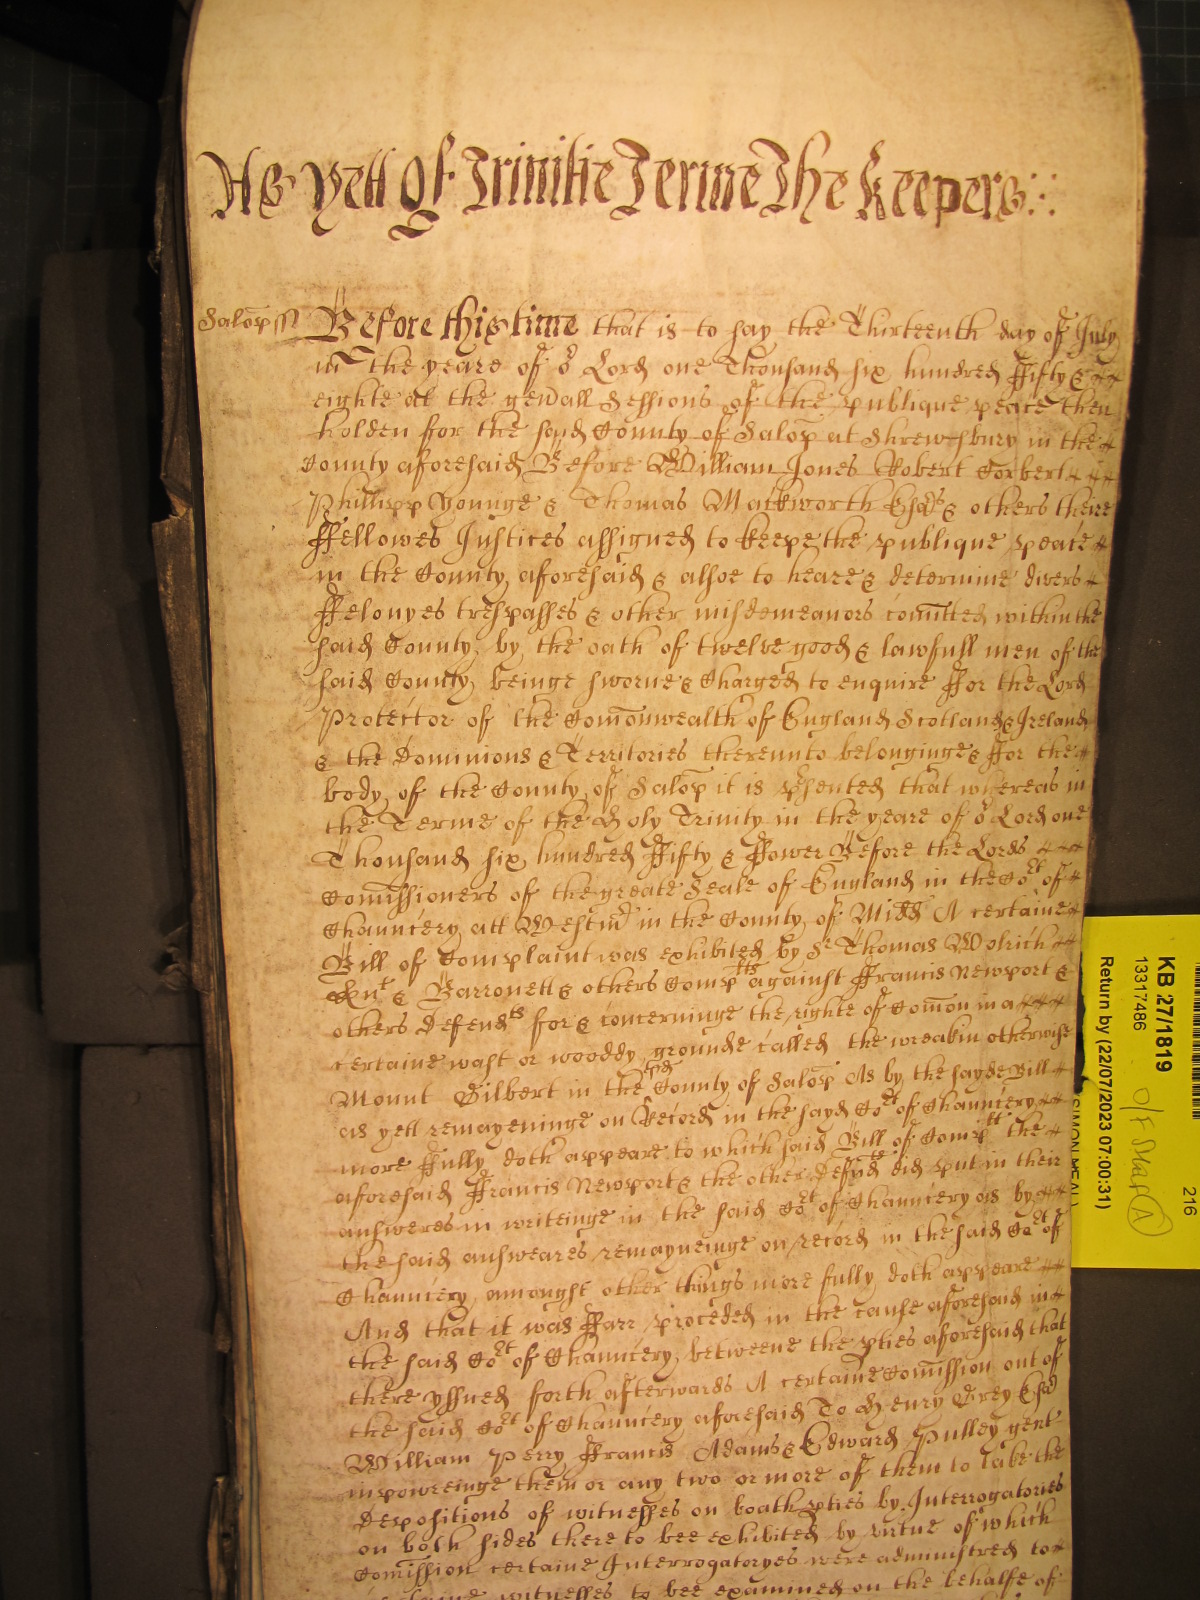 As yett Of Trinitie Terme The Keepers
Salop ss Before this time that is to say the Thirteenth day of July
in the yeare of or Lord one Thousand six hundred ffifty &
eighte att the genall Sessions of the publique peace then
holden for the said County of Salop at Shrewsbury in the
County aforesaid Before William Jones Robert Corbett
Phillipp Younge & Thomas Mackworth Esqrs & others theire
ffellowes Justices assigned to keepe the publique peace
in the County aforesaid & alsoe to heare & determine divers
ffelonyes trespasses & other misdemeanors comitted within the
said County by the oath of twelve good & lawfull men of the
said County beinge sworne & Charged to enquire ffor the Lord
Protector of the Comonwealth of England Scotland & Ireland
& the Dominions & Territories thereunto belonginge & ffor the
body of the County of Salop it is psented that whereas in
the Terme of the Holy Trinity in the yeare of or Lord one
Thousand six hundred ffifty & ffower Before the Lords
Comissioners of the greate Seale of England in the Cort of
Chauncery att Westmr in the County of Midd A certaine
Bill of Complaint was exhibited by Sr Thomas Wolrich
Knt & Barronett & others Complts against ffrancis Newport &
others Defendts for & concerninge the righte of Comon in a
certaine wast or wooddy grounde called the wreakin otherwise
Mount Gilbert in the said County of Salop As by the sayde Bill
as yett remayeninge on Record in the sayd Cort of Chauncery
more ffully doth appeare to which said Bill of Complt the
aforesaid ffrancis Newport & the other Defendts did put in their
answeres in writeinge in the said Cort of Chauncery as by
the said answeares remayneinge on record in the said Cort of
Chauncery amongst other things more fully doth appeare
And that it was ffarr proceded in the cause aforesaid in
the said Cort of Chauncery betweene the pties aforesaid that
there yssued forth afterwards A certaine Comission out of
the said Cort of Chauncery aforesaid To Henry Grey Esqr
William Perry ffrancis Adams & Edward Pulley gent
impowreinge them or any two or more of them to take the
Depositions of witnesses on boath pties by Interrogatories
on both sides there to bee exhibited by virtue of which
Comission certaine Interrogatoryes were administred to
witnesses to bee examined on the behalfe of
KB 27/1819
13317486
Return by (22/07/2023 07:00:31)
216